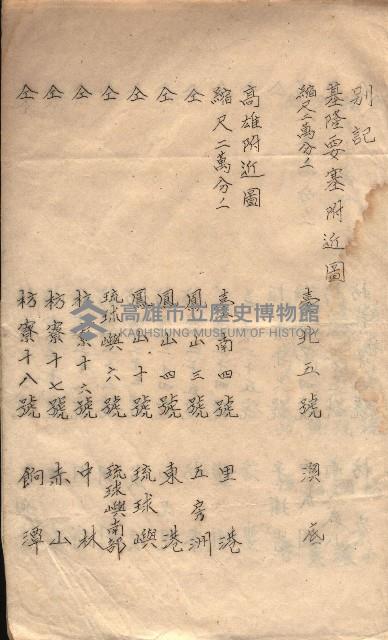 別記
基隆要塞附近圖
縮尺二萬分ノ一
臺北五號 澳底
高雄附近圖
縮尺二萬分ノ一
臺南四號 里港
仝 鳳山三號 五房洲
仝 鳳山四號 東港
仝 鳳山十號 琉球嶼
仝 琉球嶼六號 琉球嶼南部
仝 枋寮十六號 中林
仝 枋寮十七號 赤山
仝 枋寮十八號 餉潭
高雄市立歷史博物館
KAOHSIUNG MUSEUM OF HISTORY